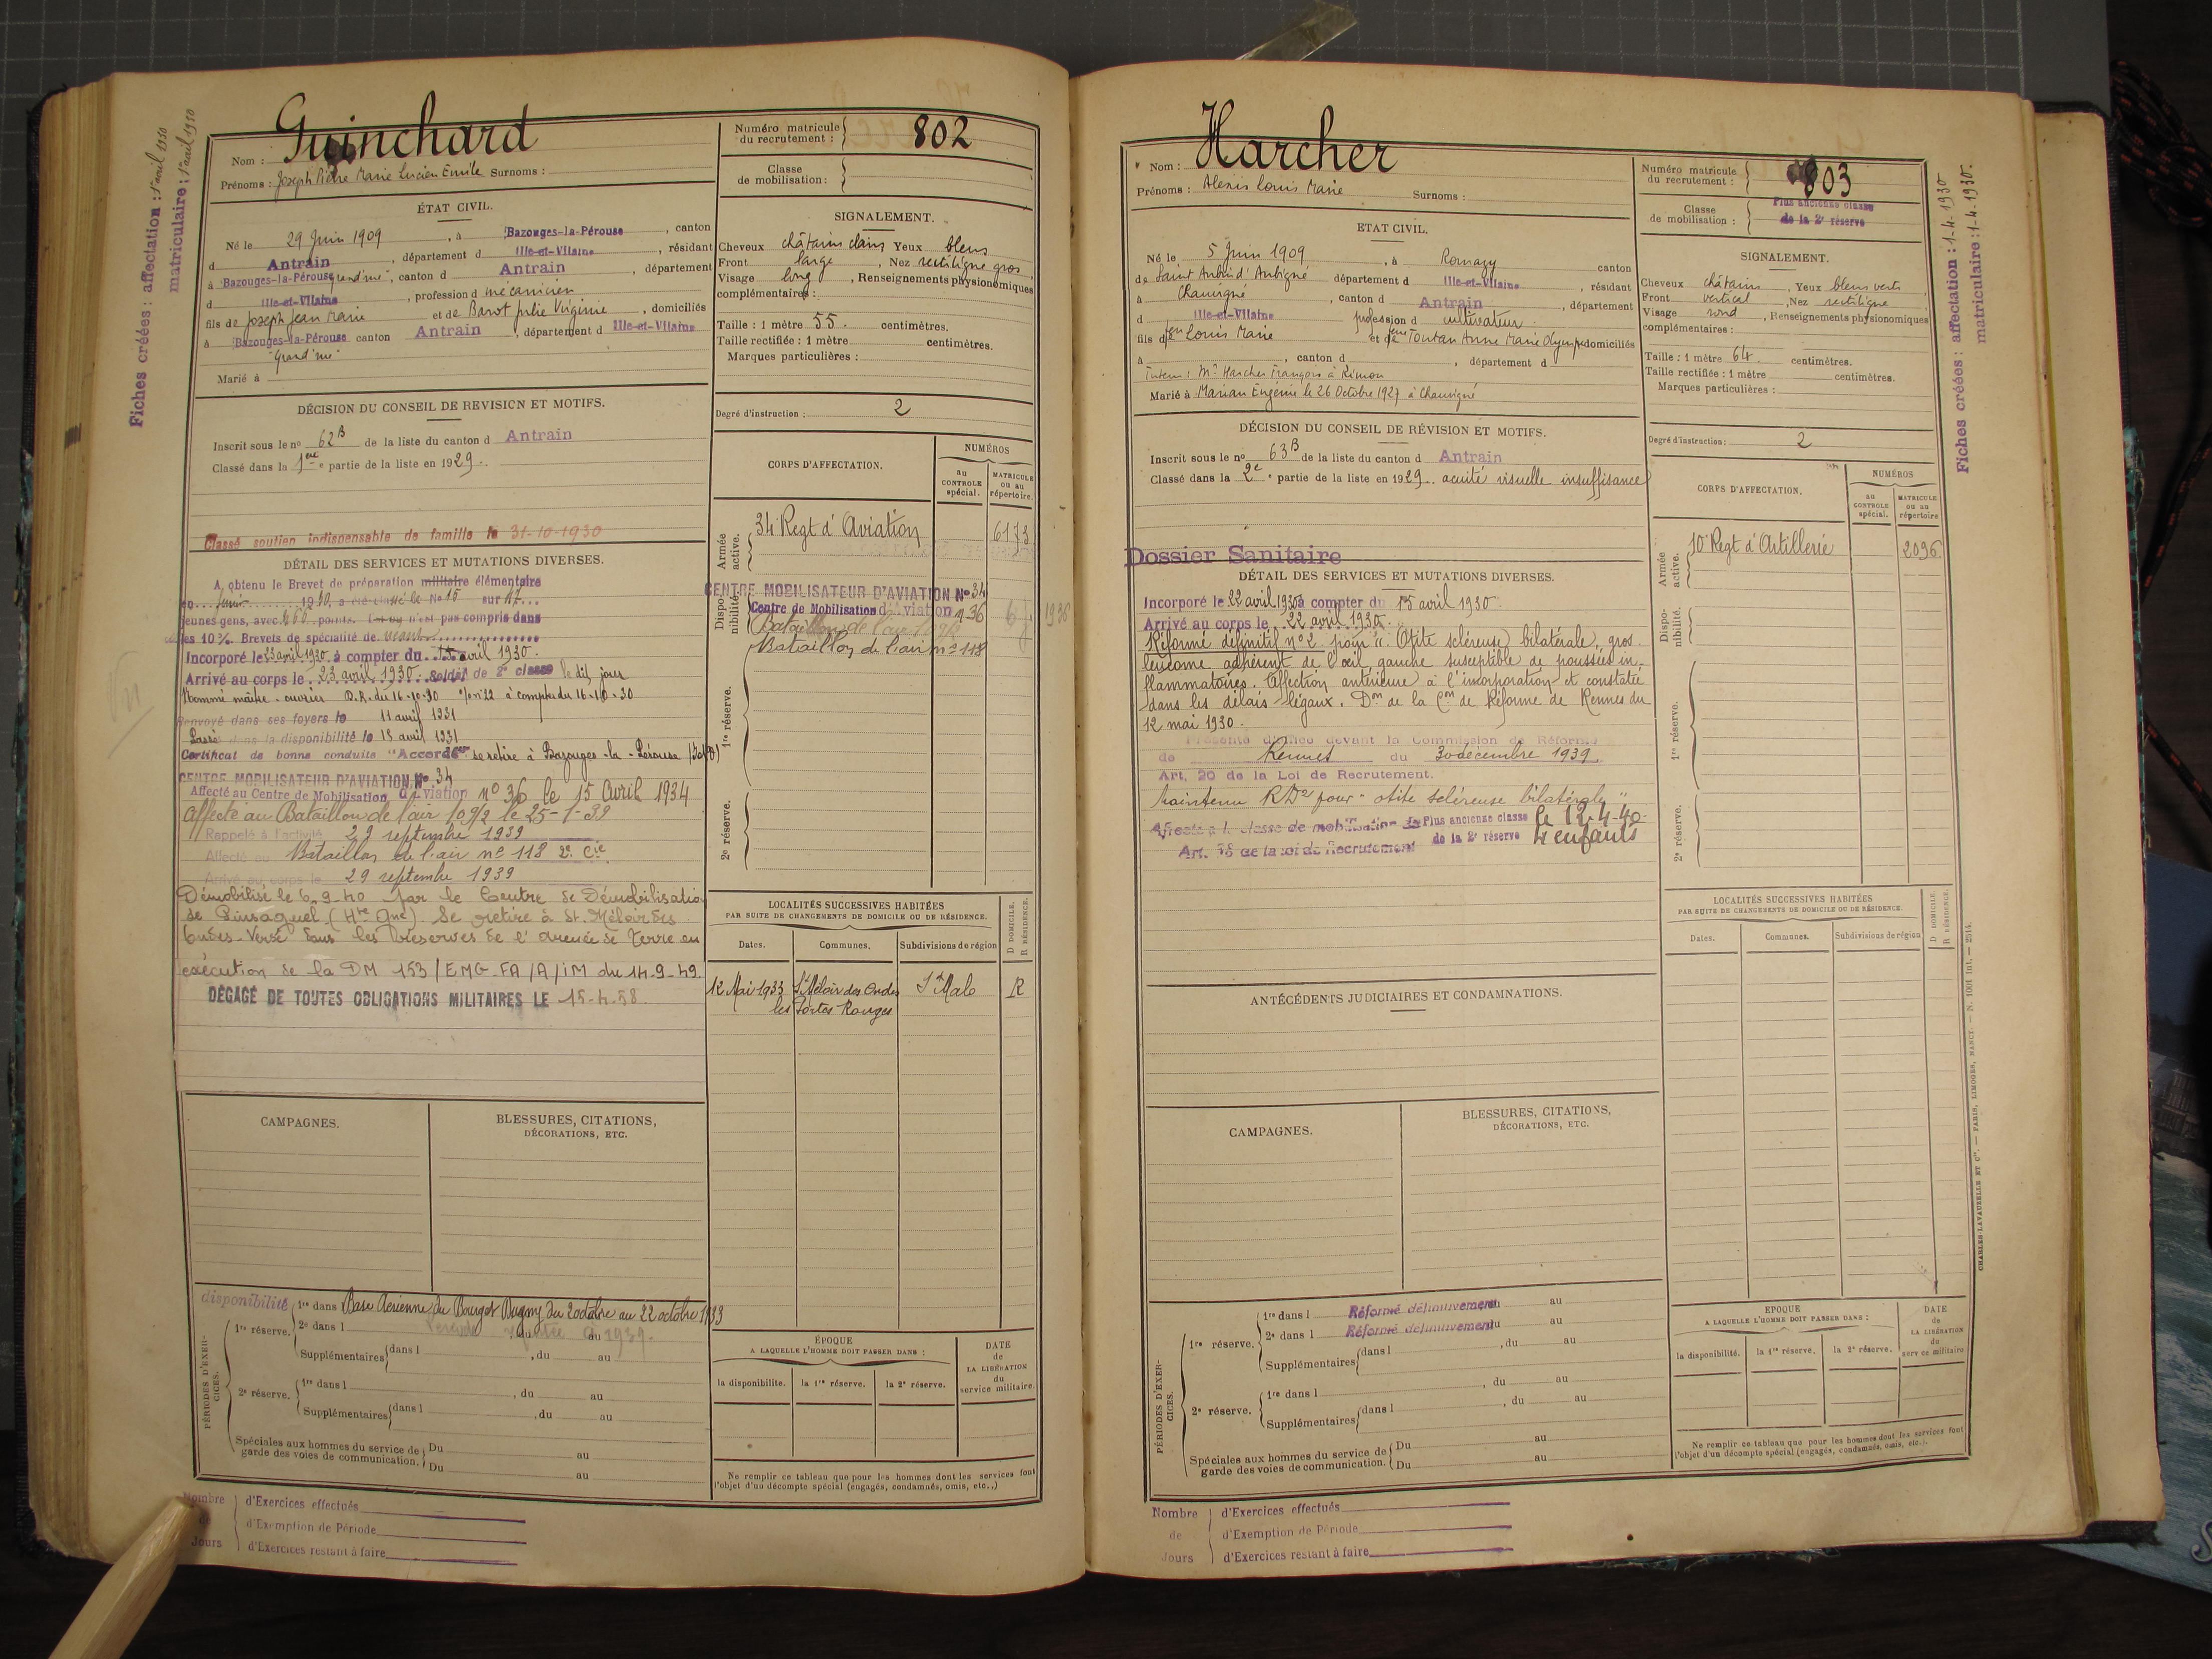 Fiches créées : affectation : 1er avril 1930
matriculaire : 1er avril 1930
Guinchard
Nom :
Prénoms : Joseph Pierre Marie Lucien Emile Surnoms :
Numéro matricule du recrutement : 802
Classe de mobilisation :
ÉTAT CIVIL.
Né le 29 Juin 1909, à Bazouges-la-Pérouse, canton
d Antrain, département d Ille-et-Vilaine, résidant
à Bazouges-la-Pérouse "grand'rue", canton d Antrain, département
d Ille-et-Vilaine, profession d mécanicien
fils de Joseph Jean Marie et de Barot Julie Virginie, domiciliés
à Bazouges-la-Pérouse canton Antrain, département d Ille-et-Vilaine
"Grand'rue"
Marié à
SIGNALEMENT.
Cheveux châtains clairs Yeux bleus
Front large, Nez rectiligne gros,
Visage long, Renseignements physionomiques
complémentaires :
Taille : 1 mètre 55. centimètres.
Taille rectifiée : 1 mètre centimètres.
Marques particulières :
DÉCISION DU CONSEIL DE REVISION ET MOTIFS.
Inscrit sous le no 62B de la liste du canton d Antrain
Classé dans la 1ère partie de la liste en 1929.
Classé soutien indispensable de famille le 31-10-1930
Degré d'instruction : 2
CORPS D'AFFECTATION.
NUMÉROS
au CONTROLE spécial.
MATRICULE ou au répertoire.
Armée active.
34e Regt d'Aviation
6173
Disponibilité.
CENTRE MOBILISATEUR D'AVIATION No 34
Centre de Mobilisation d'Aviation no 36
Bataillon de l'air 109/2
Bataillon de l'air no 118
1re réserve.
2e réserve.
DÉTAIL DES SERVICES ET MUTATIONS DIVERSES.
A obtenu le Brevet de préparation militaire élémentaire
en 1930, a été classé le No 15 sur 17
jeunes gens, avec 466 points. n'est pas compris dans
les 10 %. Brevets de spécialité de
Incorporé le 23 avril 1930 à compter du 15 avril 1930.
Arrivé au corps le 23 avril 1930. Soldat de 2e classe le dit jour
Nommé maître-ouvrier D.R. du 16-10-30 à compter du 16-10-30
Renvoyé dans ses foyers le 11 avril 1931
Passé dans la disponibilité le 15 avril 1931
Certificat de bonne conduite "Accordé" se retire à Bazouges-la-Pérouse
CENTRE MOBILISATEUR D'AVIATION No 34
Affecté au Centre de Mobilisation d'Aviation no 36 le 15 Avril 1934
affecté au Bataillon de l'air 109/2 le 25-1-39
Rappelé à l'activité 29 septembre 1939
Affecté au Bataillon de l'air no 118 2e Cie
Arrivé au corps le 29 septembre 1939
Démobilisé le 6-9-40 par le Centre de Démobilisation
de Pinsaguel (Hte Gne). Se retire à St. Méloir des
Ondes - Versé dans les réserves de l'armée de Terre en
exécution de la DM 153/EMG-FA/A/IM du 14-9-49.
DÉGAGÉ DE TOUTES OBLIGATIONS MILITAIRES LE 15-4-58.
LOCALITÉS SUCCESSIVES HABITÉES
PAR SUITE DE CHANGEMENTS DE DOMICILE OU DE RÉSIDENCE.
Dates. Communes. Subdivisions de région D DOMICILE. R RÉSIDENCE.
12 Mai 1933 St Méloir des Ondes St Malo R
les Portes Rouges
CAMPAGNES.
BLESSURES, CITATIONS,
DÉCORATIONS, ETC.
PÉRIODES D'EXERCICES.
disponibilité
1re réserve. 1re dans Base Aérienne du Bourget Dugny du 2 octobre au 22 octobre 1933
2e dans l du au
Supplémentaires dans l, du au
2e réserve. 1re dans l, du au
Supplémentaires dans l, du au
Spéciales aux hommes du service de garde des voies de communication. Du au
Du au
ÉPOQUE
A LAQUELLE L'HOMME DOIT PASSER DANS :
la disponibilité. la 1re réserve. la 2e réserve.
DATE de LA LIBÉRATION du service militaire.
Ne remplir ce tableau que pour les hommes dont les services font
l'objet d'un décompte spécial (engagés, condamnés, omis, etc..)
Nombre de Jours
d'Exercices effectués
d'Exemption de Période
d'Exercices restant à faire
Harcher
Nom :
Prénoms : Alexis Louis Marie Surnoms :
Numéro matricule du recrutement : 803
Classe de mobilisation : Plus ancienne classe
de la 2e réserve
ETAT CIVIL.
Né le 5 Juin 1909, à Romazy canton
de Saint Aubin d'Aubigné département d Ille-et-Vilaine, résidant
à Chauvigné, canton d Antrain, département
d Ille-et-Vilaine profession d cultivateur
fils de feu Louis Marie et de feue Toutan Anne Marie Olympe domiciliés
à, canton d, département d
Tuteur : Mr Harcher François à Rimou
Marié à Marian Eugénie le 26 Octobre 1927 à Chauvigné
SIGNALEMENT.
Cheveux châtains, Yeux bleus verts
Front vertical, Nez rectiligne
Visage rond, Renseignements physionomiques
complémentaires :
Taille : 1 mètre 64 centimètres.
Taille rectifiée : 1 mètre centimètres.
Marques particulières :
DÉCISION DU CONSEIL DE RÉVISION ET MOTIFS.
Inscrit sous le no 63B de la liste du canton d Antrain
Classé dans la 2e partie de la liste en 1929. acuité visuelle insuffisance
Dossier Sanitaire
Degré d'instruction : 2
CORPS D'AFFECTATION.
NUMÉROS
au CONTROLE spécial.
MATRICULE ou au répertoire
Armée active.
10e Regt d'Artillerie
2096
Disponibilité.
1re réserve.
2e réserve.
DÉTAIL DES SERVICES ET MUTATIONS DIVERSES.
Incorporé le 22 avril 1930 à compter du 15 avril 1930.
Arrivé au corps le 22 avril 1930.
Réformé définitif no 2 pour "Otite scléreuse bilatérale, gros
leucome adhérent de l'oeil gauche susceptible de poussées in-
flammatoires. Affection antérieure à l'incorporation et constatée
dans les délais légaux. Don de la Con de Réforme de Rennes du
12 mai 1930.
Présenté d'office devant la Commission de Réforme
de Rennes du 30 décembre 1939
Art. 20 de la Loi de Recrutement.
Maintenu RD2 pour "otite scléreuse bilatérale"
Affecté à la classe de mobilisation la Plus ancienne classe le 12-4-40-
de la 2e réserve 4 enfants
Art. 58 de la loi de Recrutement
ANTÉCÉDENTS JUDICIAIRES ET CONDAMNATIONS.
LOCALITÉS SUCCESSIVES HABITÉES
PAR SUITE DE CHANGEMENTS DE DOMICILE OU DE RÉSIDENCE.
Dates. Communes. Subdivisions de région D DOMICILE. R RÉSIDENCE.
CAMPAGNES.
BLESSURES, CITATIONS,
DÉCORATIONS, ETC.
PÉRIODES D'EXERCICES.
1re réserve. 1re dans l Réformé définitivement du au
2e dans l Réformé définitivement du au
Supplémentaires dans l, du au
2e réserve. 1re dans l, du au
Supplémentaires dans l, du au
Spéciales aux hommes du service de garde des voies de communication. Du au
Du au
EPOQUE
A LAQUELLE L'HOMME DOIT PASSER DANS :
la disponibilité. la 1re réserve. la 2e réserve.
DATE de LA LIBÉRATION du service militaire
Ne remplir ce tableau que pour les hommes dont les services font
l'objet d'un décompte spécial (engagés, condamnés, omis, etc..).
Nombre de Jours
d'Exercices effectués
d'Exemption de Période
d'Exercices restant à faire
Fiches créées : affectation : 1-4-1930
matriculaire : 1-4-1930.
CHARLES-LAVAUZELLE ET Cie. — PARIS, LIMOGES, NANCY. — N. 1001 Int. — 2514.